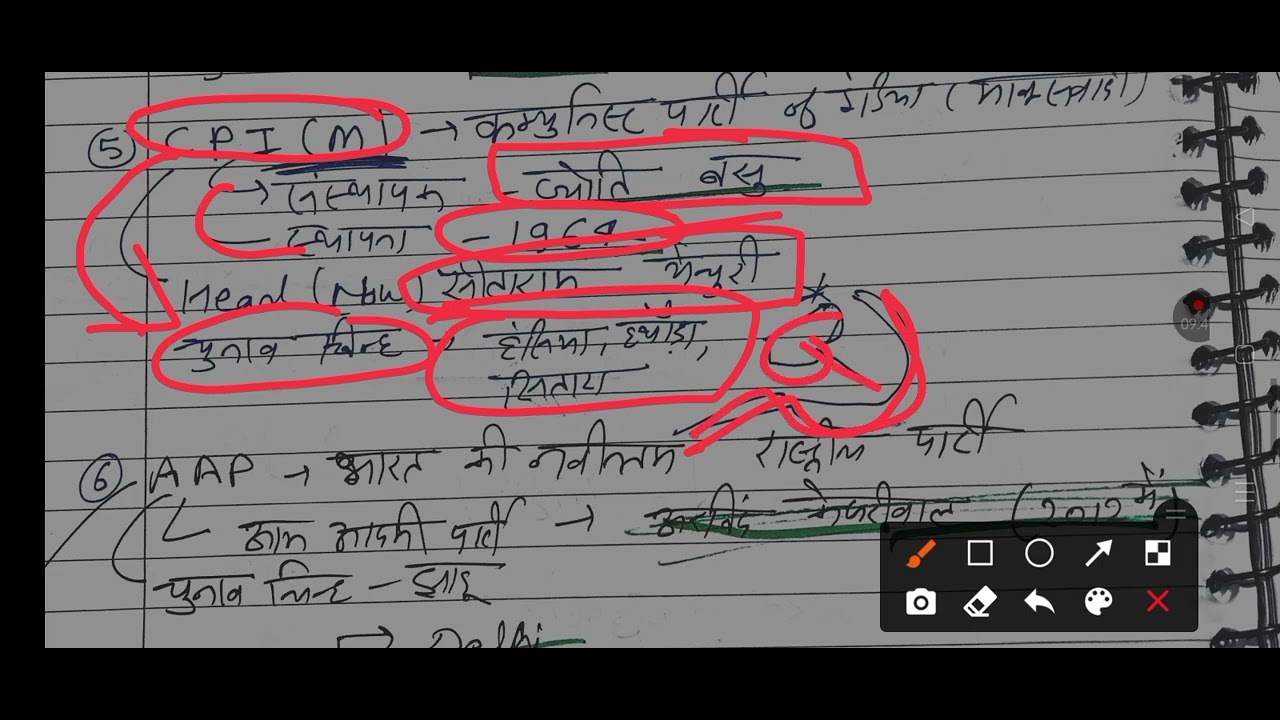 ⑤ CPI (M) → कम्युनिस्ट पार्टी ऑफ इंडिया (मार्क्सवादी)
→ संस्थापक - ज्योति बसु
- स्थापना - 1964
Head (Now) सीताराम येचुरी
चुनाव चिन्ह - हंसिया, हथौड़ा,
सितारा
⑥ AAP → भारत की नवीनतम राष्ट्रीय पार्टी
आम आदमी पार्टी → अरविंद केजरीवाल (2012 में)
चुनाव चिन्ह - झाड़ू
→ Delhi
09:4